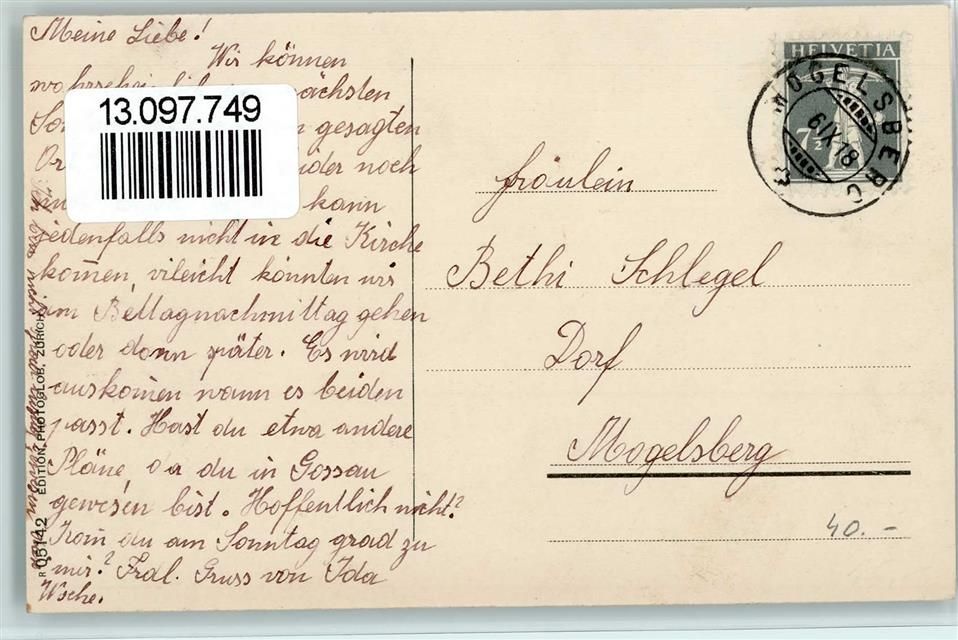 Meine Liebe!
Wir können
nächsten
gesagten
oder noch
kann
jedenfalls nicht in die Kirche
kom̅en, vileicht könnten wir
am Bettagnachmittag gehen
oder dann später. Es wird
auskom̅en wann es beiden
passt. Hast du etwa andere
Pläne, da du in Gossau
gewesen bist. Hoffentlich nicht?
Kom̅ du am Sonntag grad zu
mir? Frdl. Gruss von Ida
13.097.749
R 05142 EDITION PHOTOGLOB, ZÜRICH
HELVETIA
7½
MOGELSBERG
6IX18
Fräulein
Bethi Schlegel
Dorf
Mogelsberg
40.-